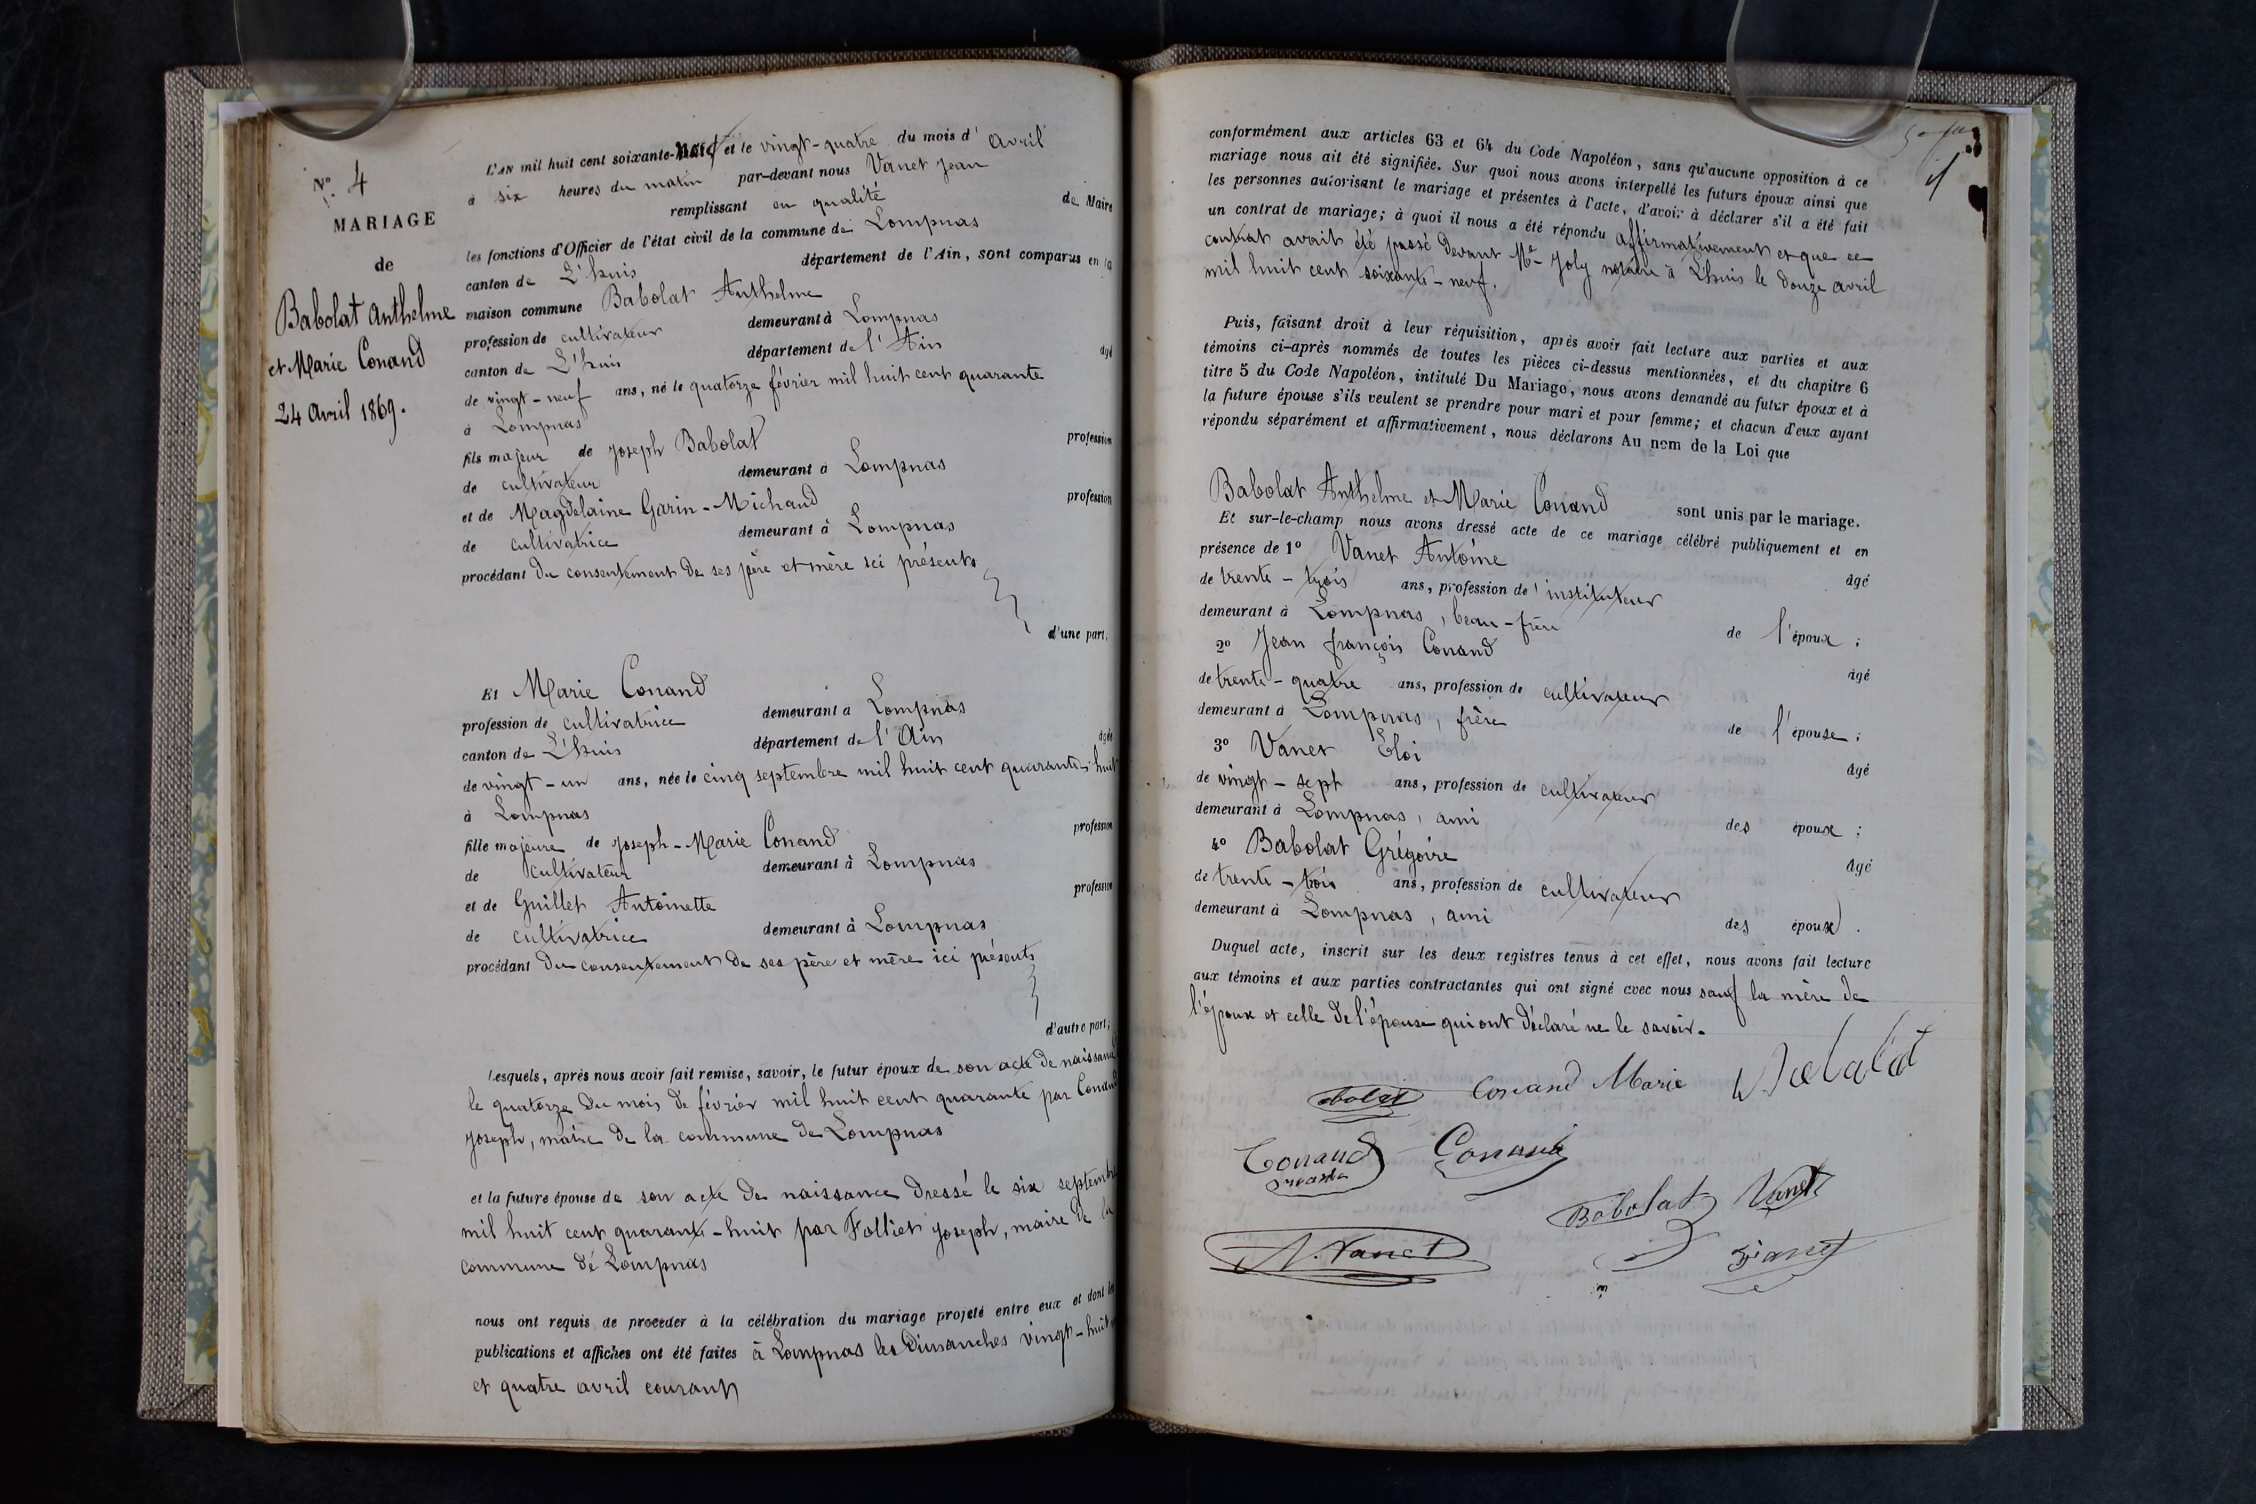 N° 4
MARIAGE
de
Babolat Anthelme
et Marie Conand
24 Avril 1869.
L'AN mil huit cent soixante-neuf et le vingt-quatre du mois d' Avril
à six heures du matin par-devant nous Vanet Jean
remplissant en qualité de Maire
les fonctions d'Officier de l'état civil de la commune de Lompnas
canton de L'huis département de l'Ain, sont comparus en la
maison commune Babolat Anthelme
profession de cultivateur demeurant à Lompnas
canton de L'huis département de l'Ain âgé
de vingt-neuf ans, né le quatorze février mil huit cent quarante
à Lompnas
fils majeur de Joseph Babolat profession
de cultivateur demeurant à Lompnas
et de Magdelaine Garin-Michaud profession
de cultivatrice demeurant à Lompnas
procédant du consentement de ses père et mère ici présents
d'une part,
Et Marie Conand
profession de cultivatrice demeurant à Lompnas
canton de L'huis département de l'Ain âgée
de vingt-un ans, née le cinq septembre mil huit cent quarante-huit
à Lompnas
fille majeure de Joseph-Marie Conand profession
de cultivateur demeurant à Lompnas
et de Guillet Antoinette profession
de cultivatrice demeurant à Lompnas
procédant du consentement de ses père et mère ici présents
d'autre part;
Lesquels, après nous avoir fait remise, savoir, le futur époux de son acte de naissance
le quatorze du mois de février mil huit cent quarante par Conand
Joseph, maire de la commune de Lompnas
et la future épouse de son acte de naissance dressé le six septembre
mil huit cent quarante-huit par Folliet Joseph, maire de la
commune de Lompnas
nous ont requis de procéder à la célébration du mariage projeté entre eux et dont les
publications et affiches ont été faites à Lompnas les Dimanches vingt-huit
et quatre avril courant
conformément aux articles 63 et 64 du Code Napoléon, sans qu'aucune opposition à ce
mariage nous ait été signifiée. Sur quoi nous avons interpellé les futurs époux ainsi que
les personnes autorisant le mariage et présentes à l'acte, d'avoir à déclarer s'il a été fait
un contrat de mariage; à quoi il nous a été répondu affirmativement et que ce
contrat avait été passé devant Me Joly notaire à L'huis le douze avril
mil huit cent soixante-neuf.
Puis, faisant droit à leur réquisition, après avoir fait lecture aux parties et aux
témoins ci-après nommés de toutes les pièces ci-dessus mentionnées, et du chapitre 6
titre 5 du Code Napoléon, intitulé Du Mariage, nous avons demandé au futur époux et à
la future épouse s'ils veulent se prendre pour mari et pour femme; et chacun d'eux ayant
répondu séparément et affirmativement, nous déclarons Au nom de la Loi que
Babolat Anthelme et Marie Conand sont unis par le mariage.
Et sur-le-champ nous avons dressé acte de ce mariage célébré publiquement et en
présence de 1° Vanet Antoine âgé
de trente-trois ans, profession de l'instituteur
demeurant à Lompnas, beau-frère de l'époux;
2° Jean françois Conand âgé
de trente-quatre ans, profession de cultivateur
demeurant à Lompnas, frère de l'épouse;
3° Vanet Eloi âgé
de vingt-sept ans, profession de cultivateur
demeurant à Lompnas, ami des époux;
4° Babolat Grégoire âgé
de trente-trois ans, profession de cultivateur
demeurant à Lompnas, ami des époux.
Duquel acte, inscrit sur les deux registres tenus à cet effet, nous avons fait lecture
aux témoins et aux parties contractantes qui ont signé avec nous sauf la mère de
l'époux et celle de l'épouse qui ont déclaré ne le savoir.
Conand Marie Babolat
Conand Conand
Babolat Vanet
Vanet